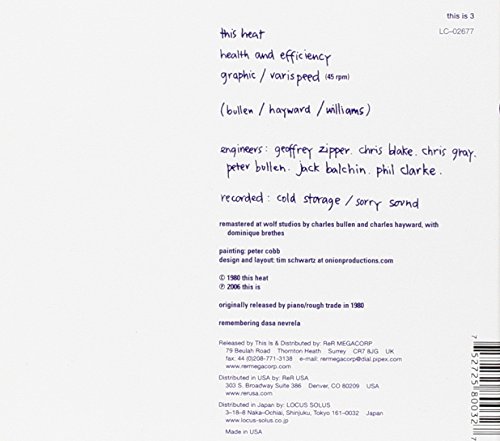 this is 3
LC-02677
this heat
health and efficiency
graphic / varispeed (45 rpm)
(bullen / hayward / williams)
engineers : geoffrey zipper. chris blake. chris gray.
peter bullen. jack balchin. phil clarke.
recorded : cold storage / sorry sound
remastered at wolf studios by charles bullen and charles hayward, with
dominique brethes
painting: peter cobb
design and layout: tim schwartz at onionproductions.com
© 1980 this heat
℗ 2006 this is
originally released by piano/rough trade in 1980
remembering dasa nevrela
Released by This Is & Distributed by: ReR MEGACORP
79 Beulah Road Thornton Heath Surrey CR7 8JG UK
fax: 44 (0)208-771-3138 e-mail: rermegacorp@dial.pipex.com
www.rermegacorp.com
Distributed in USA by: ReR USA
303 S. Broadway Suite 386 Denver, CO 80209 USA
www.rerusa.com
Distributed in Japan by: LOCUS SOLUS
3-18-8 Naka-Ochiai, Shinjuku, Tokyo 161-0032 Japan
www.locus-solus.com
Made in USA
7 52725 80032 7